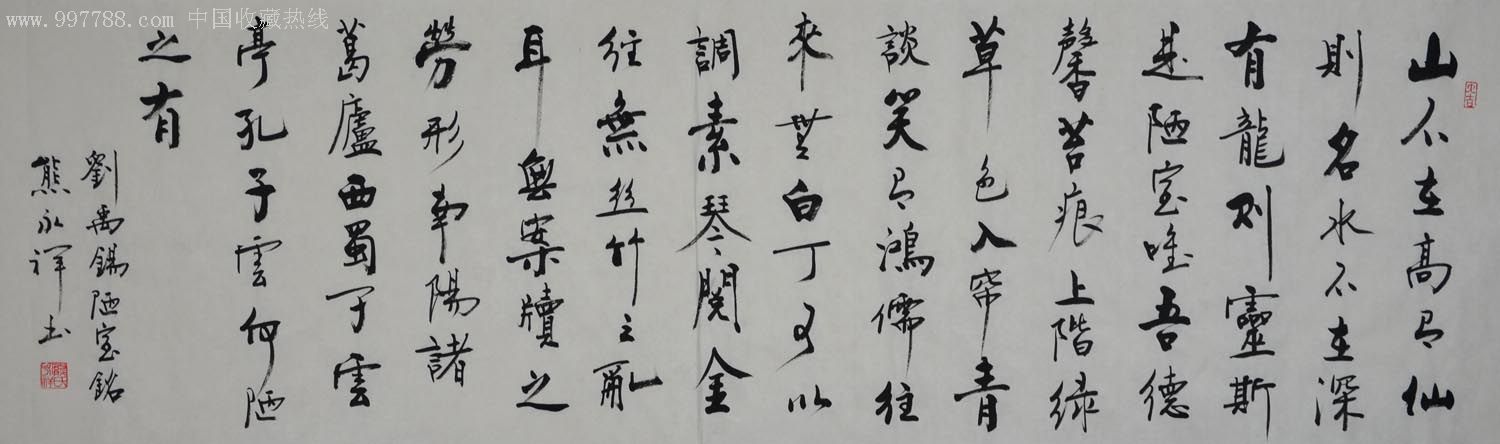 www.997788.com 中国收藏热线
山不在高有仙
則名水不在深
有龍則靈斯
是陋室唯吾德
馨苔痕上階緑
草色入帘青
談笑有鴻儒往
來無白丁可以
調素琴閱金
经無丝竹之亂
耳無案牘之
勞形南陽諸
葛廬西蜀子雲
亭孔子雲何陋
之有
劉禹錫陋室銘
熊永祥书